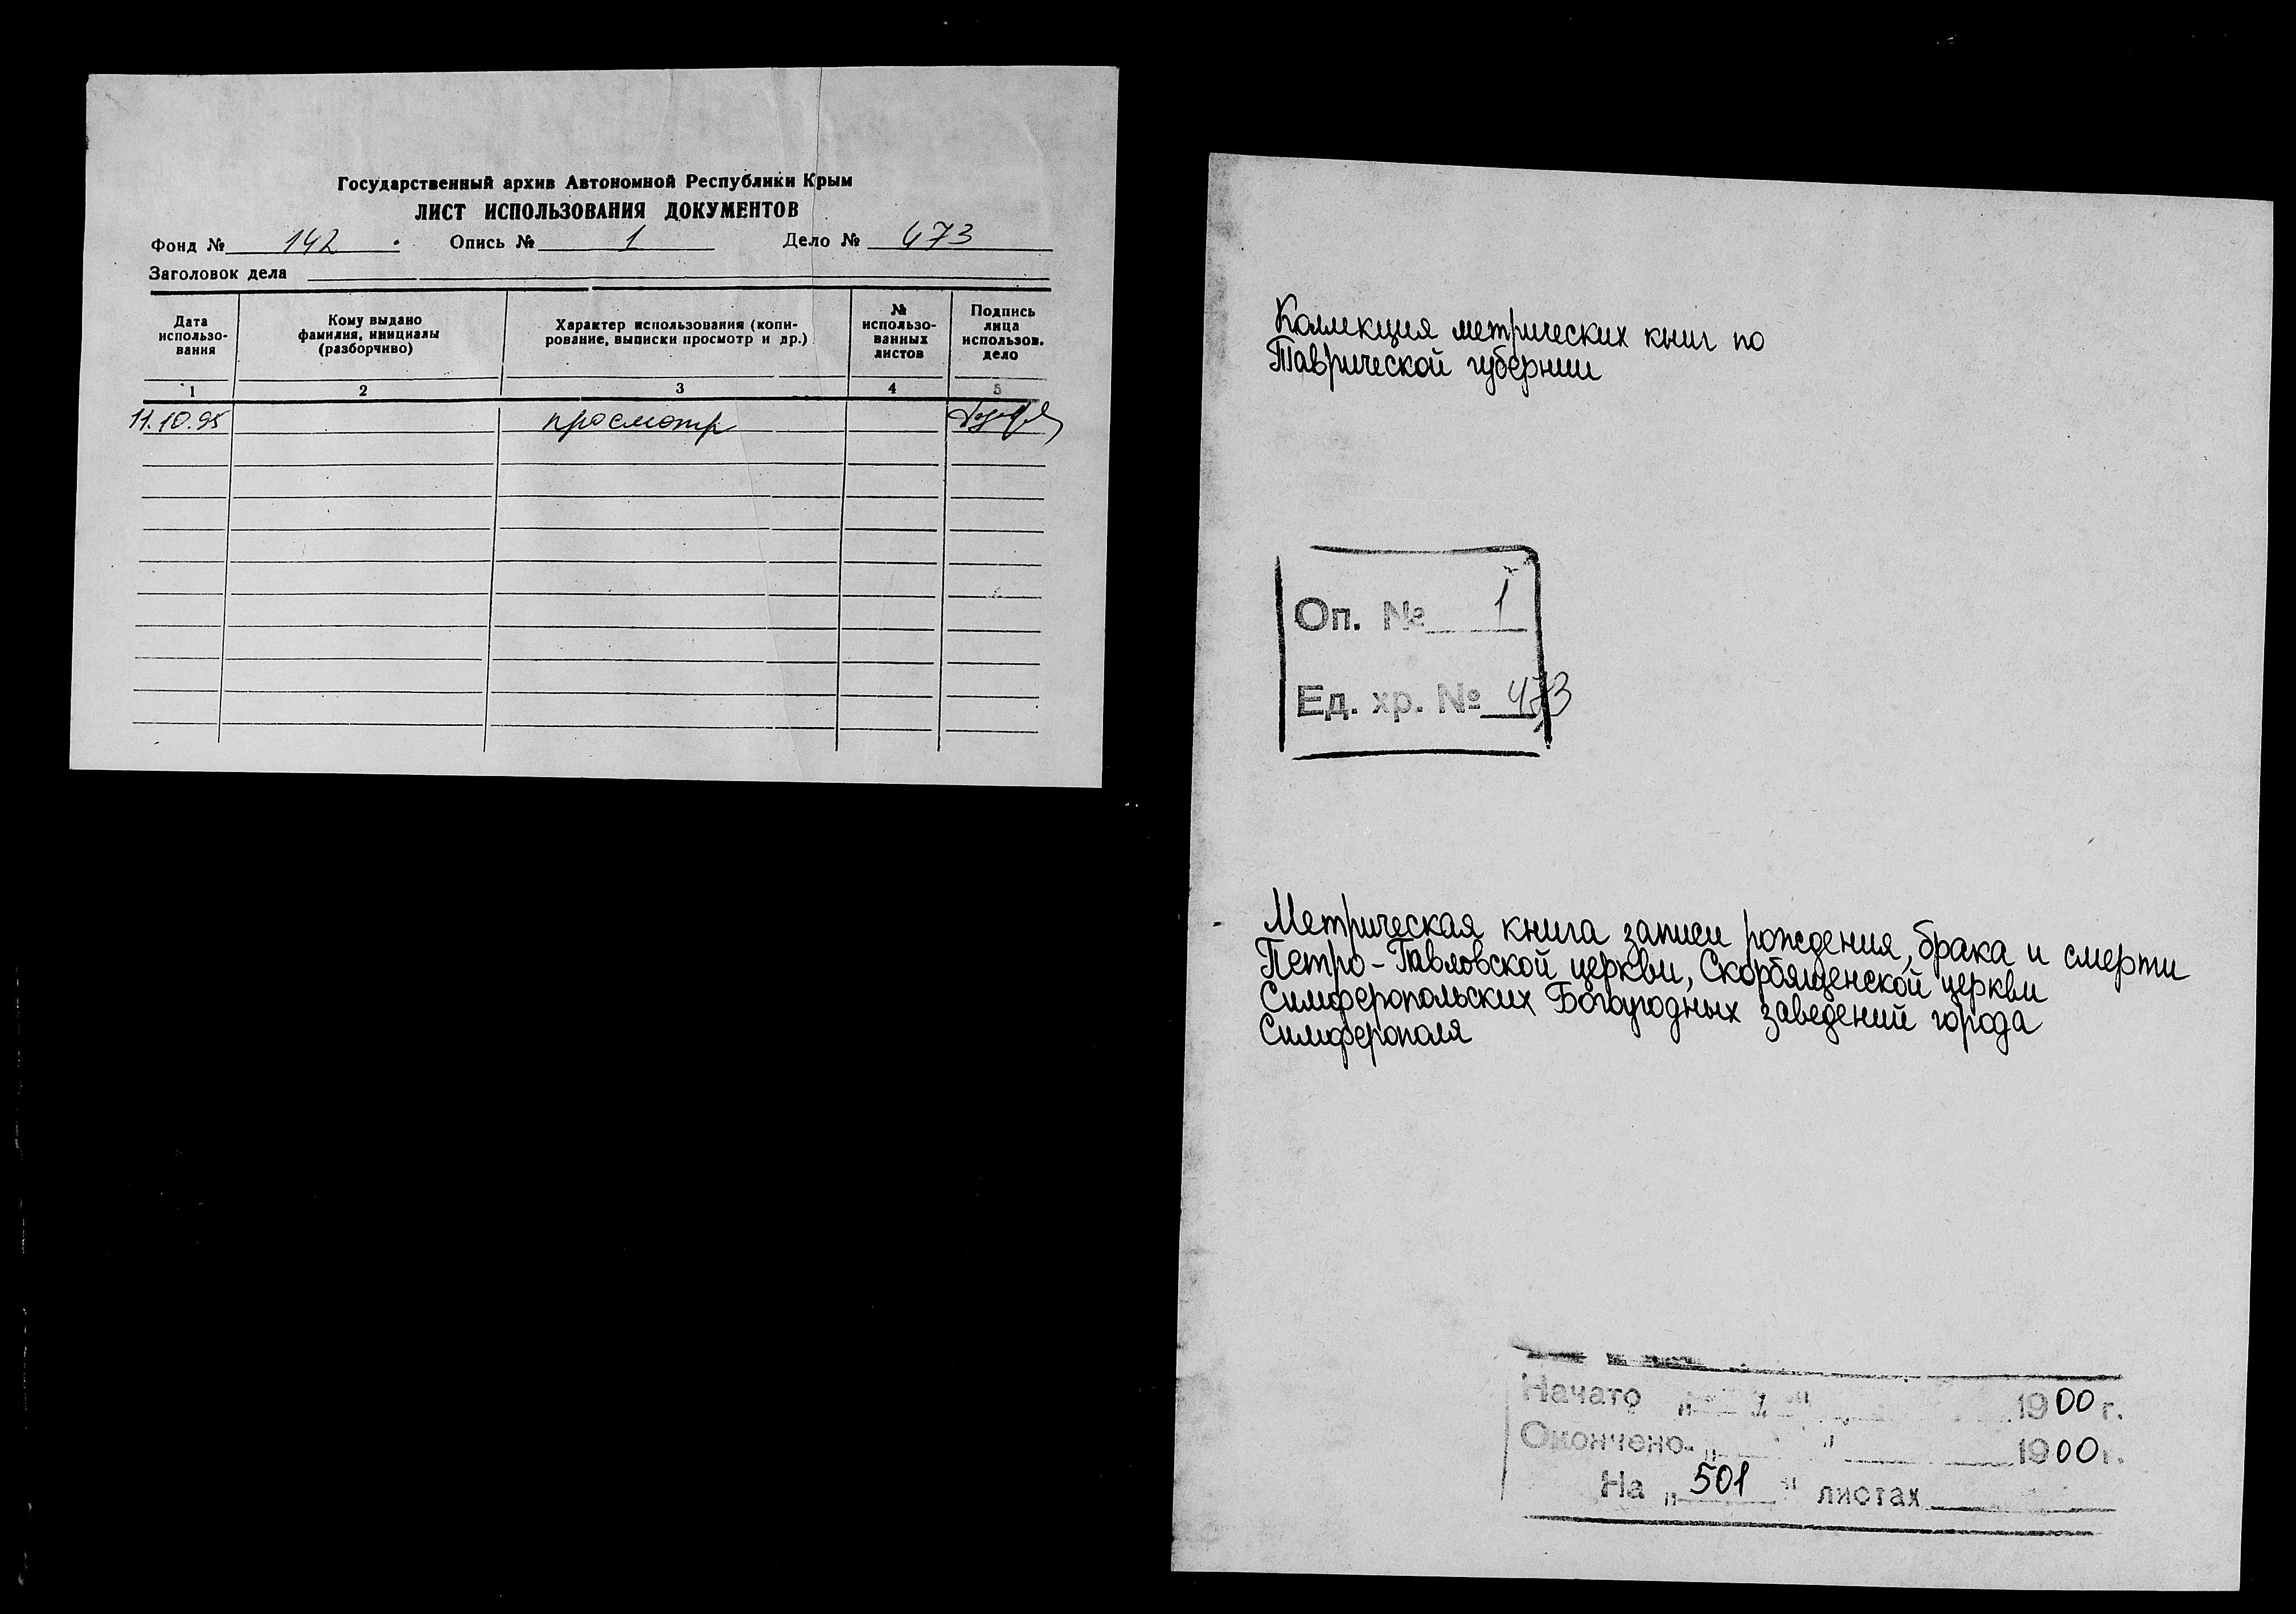 Государственный архив Автономной Республики Крым
ЛИСТ ИСПОЛЬЗОВАНИЯ ДОКУМЕНТОВ
Фонд № 142 Опись № 1 Дело № 473
Заголовок дела
Дата использо-вания
Кому выдано фамилия, инициалы (разборчиво)
Характер использования (копи-рование, выписки просмотр и др.)
№ использо-ванных листов
Подпись лица использов. дело
1 2 3 4 5
11.10.95 просмотр
Коллекция метрических книг по
Таврической губернии
Оп. № 1
Ед. хр. № 473
Метрическая книга записи рождения, брака и смерти
Петро-Павловской церкви, Скорбященской церкви
Симферопольских Богоугодных заведений города
Симферополя
Начато „ " 1900 г.
Окончено „ " 1900 г.
На „501" листах